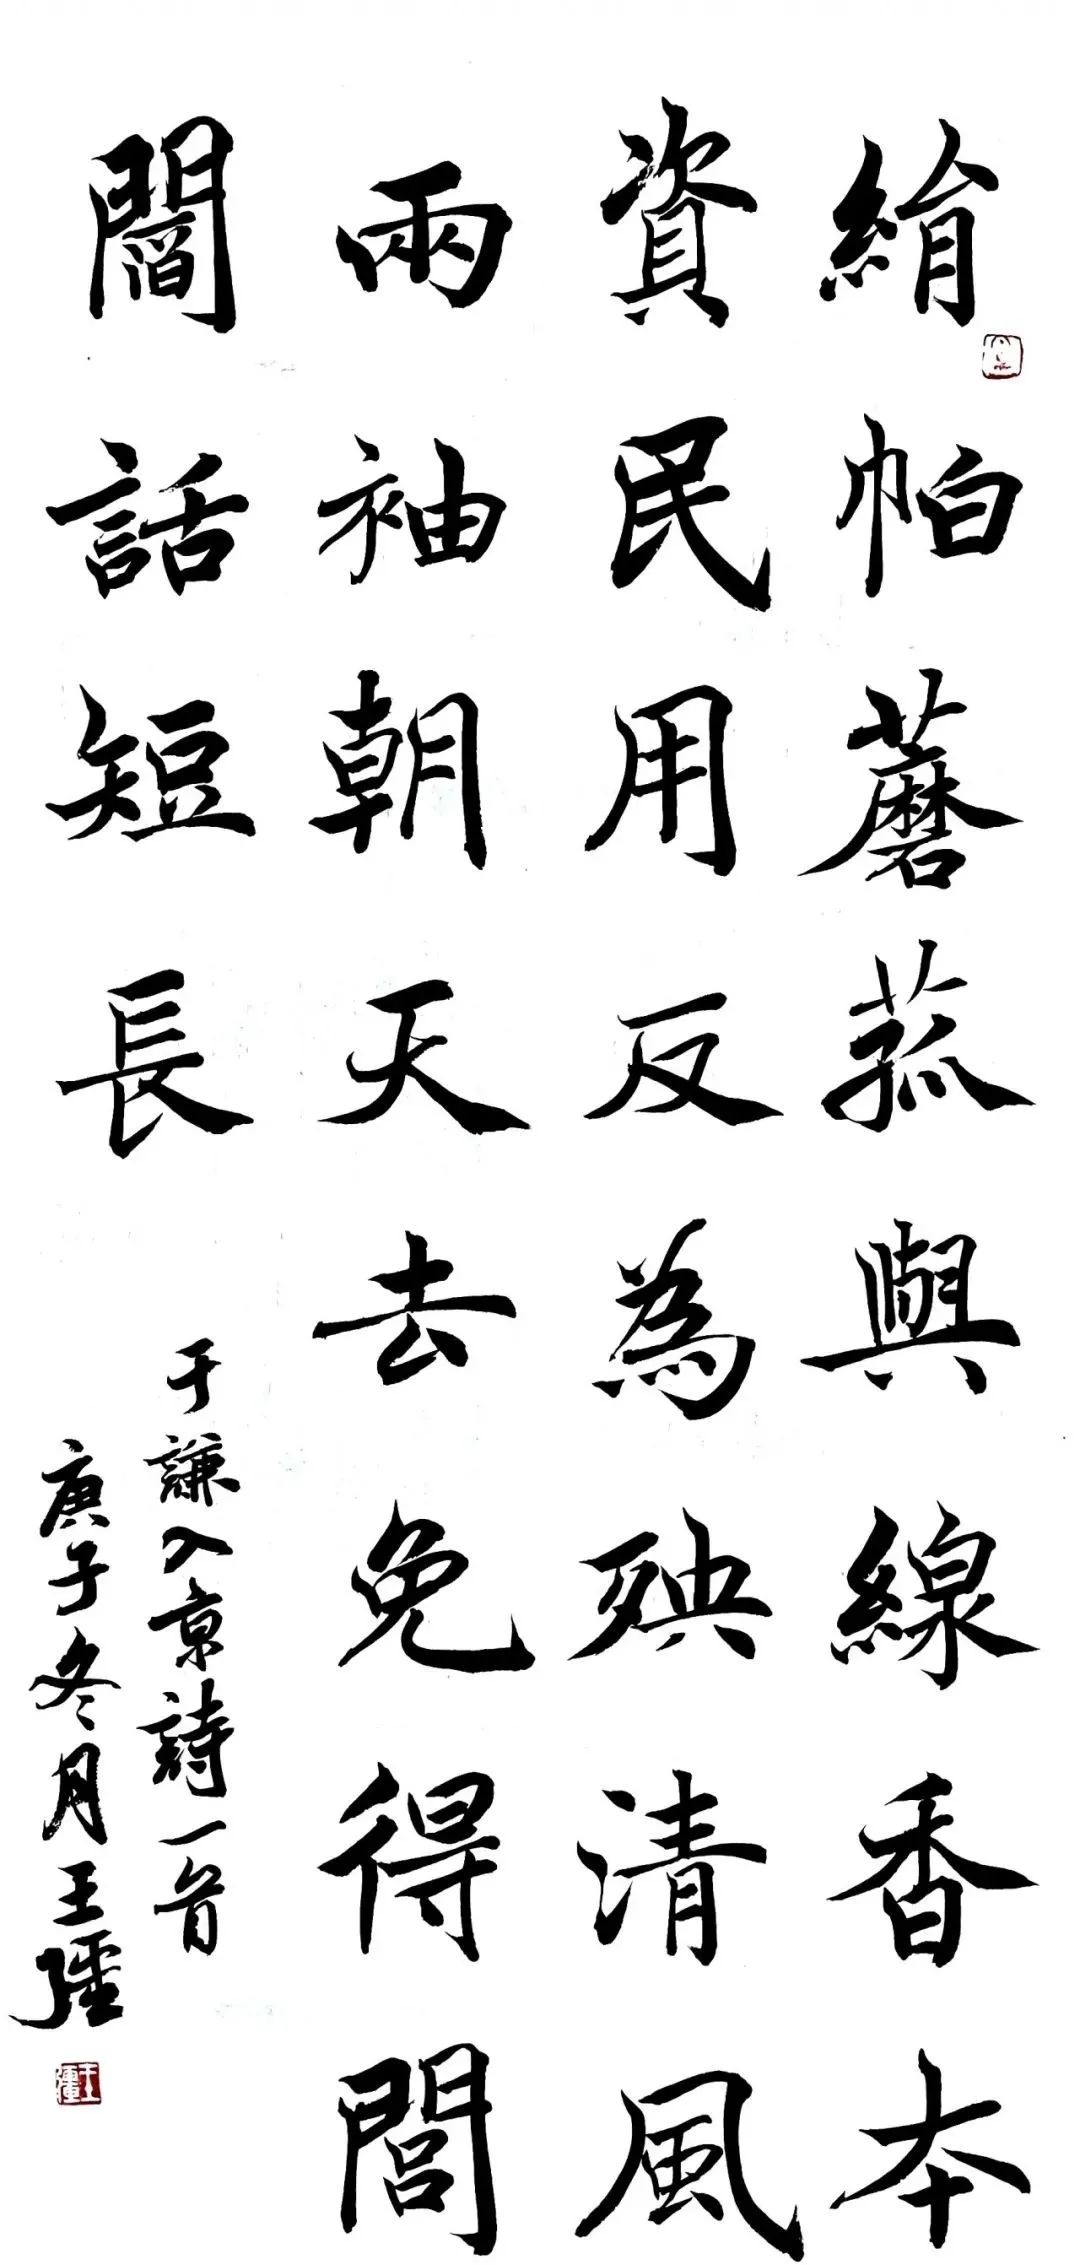 絹帕蘑菇與線香本
資民用反為殃清風
兩袖朝天去免得閭
閻話短長
于謙入京詩一首
庚子冬月王